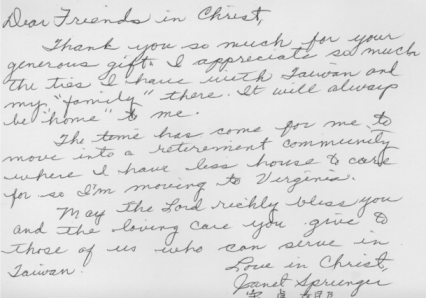 Dear Friends in Christ,
Thank you so much for your
generous gift. I appreciate so much
the ties I have with Taiwan and
my "family" there. It will always
be "home" to me.
The time has come for me to
move into a retirement community
where I have less house to care
for so I'm moving to Virginia.
May the Lord richly bless you
and the loving care you give to
those of us who can serve in
Taiwan.
Love in Christ,
Janet Sprunger